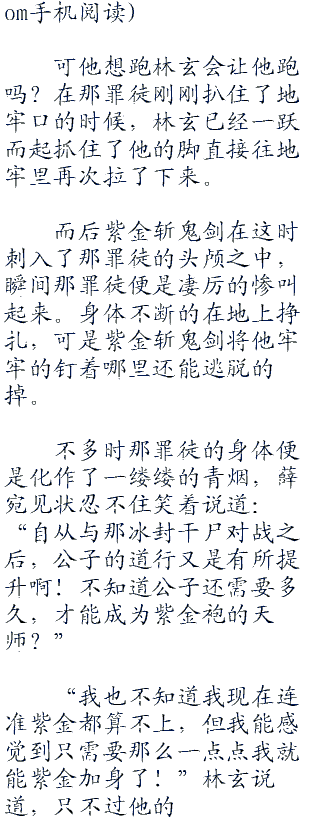 om手机阅读)
可他想跑林玄会让他跑
吗？在那罪徒刚刚扒住了地
牢口的时候，林玄已经一跃
而起抓住了他的脚直接往地
牢里再次拉了下来。
而后紫金斩鬼剑在这时
刺入了那罪徒的头颅之中，
瞬间那罪徒便是凄厉的惨叫
起来。身体不断的在地上挣
扎，可是紫金斩鬼剑将他牢
牢的钉着哪里还能逃脱的
掉。
不多时那罪徒的身体便
是化作了一缕缕的青烟，薛
宛见状忍不住笑着说道：
“自从与那冰封干尸对战之
后，公子的道行又是有所提
升啊！不知道公子还需要多
久，才能成为紫金袍的天
师？”
“我也不知道我现在连
准紫金都算不上，但我能感
觉到只需要那么一点点我就
能紫金加身了！”林玄说
道，只不过他的